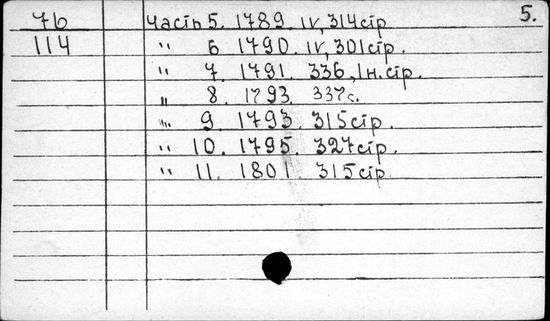 5.
76 часть 5. 1789. IV, 314 стр
114 " 6 1790. IV, 301 стр.
" 7. 1791. 336, 1 н. стр.
" 8. 1793. 337 с.
" 9. 1793. 315 стр.
" 10. 1795. 327 стр.
" 11. 1801. 315 стр.